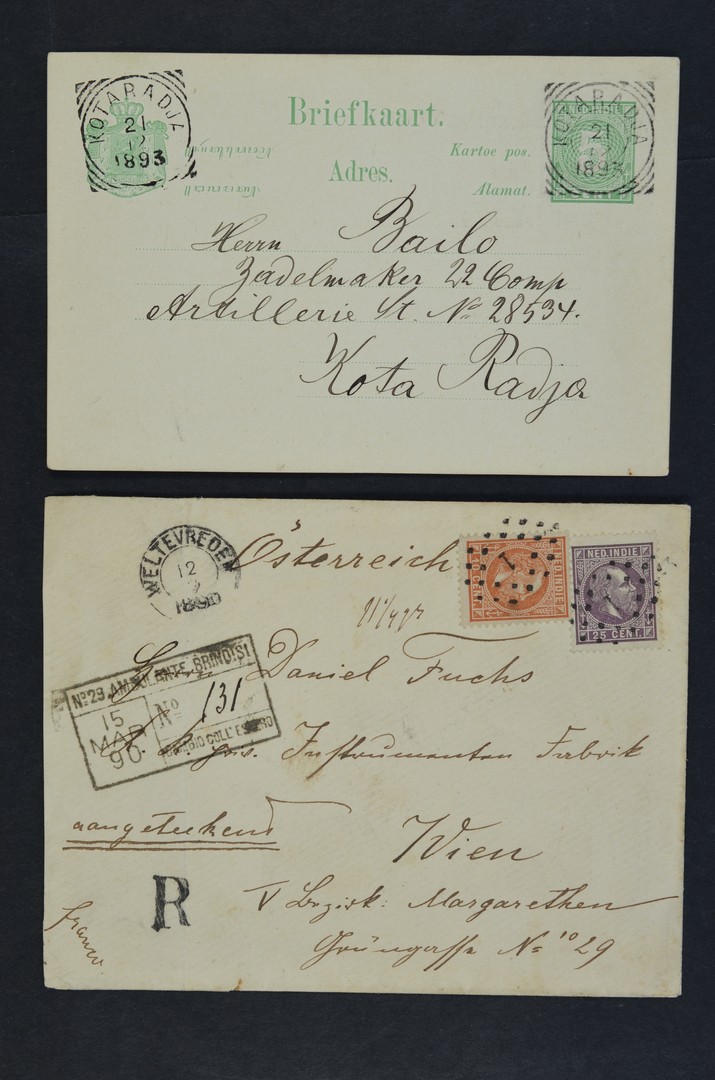 KOTARADJA
21
12
1893
Briefkaart.
Adres.
Kartoe pos.
Alamat.
KOTARADJA
21
12
1893
5
CENT
Herrn Bailo
Zadelmaker 22 Comp
Artillerie St. No 28534.
Kota Radja
WELTEVREDEN
12
2
1890
Österreich
NED.INDIE
NED.INDIE
25 CENT.
Herrn Daniel Fuchs
No 29 AMBULANTE BRINDISI
15
MAR
90
No 131
Instrumenten Fabrik
aangeteekend
Wien
R
V Bezirk: Margarethen
Grüngasse No 29
Franco